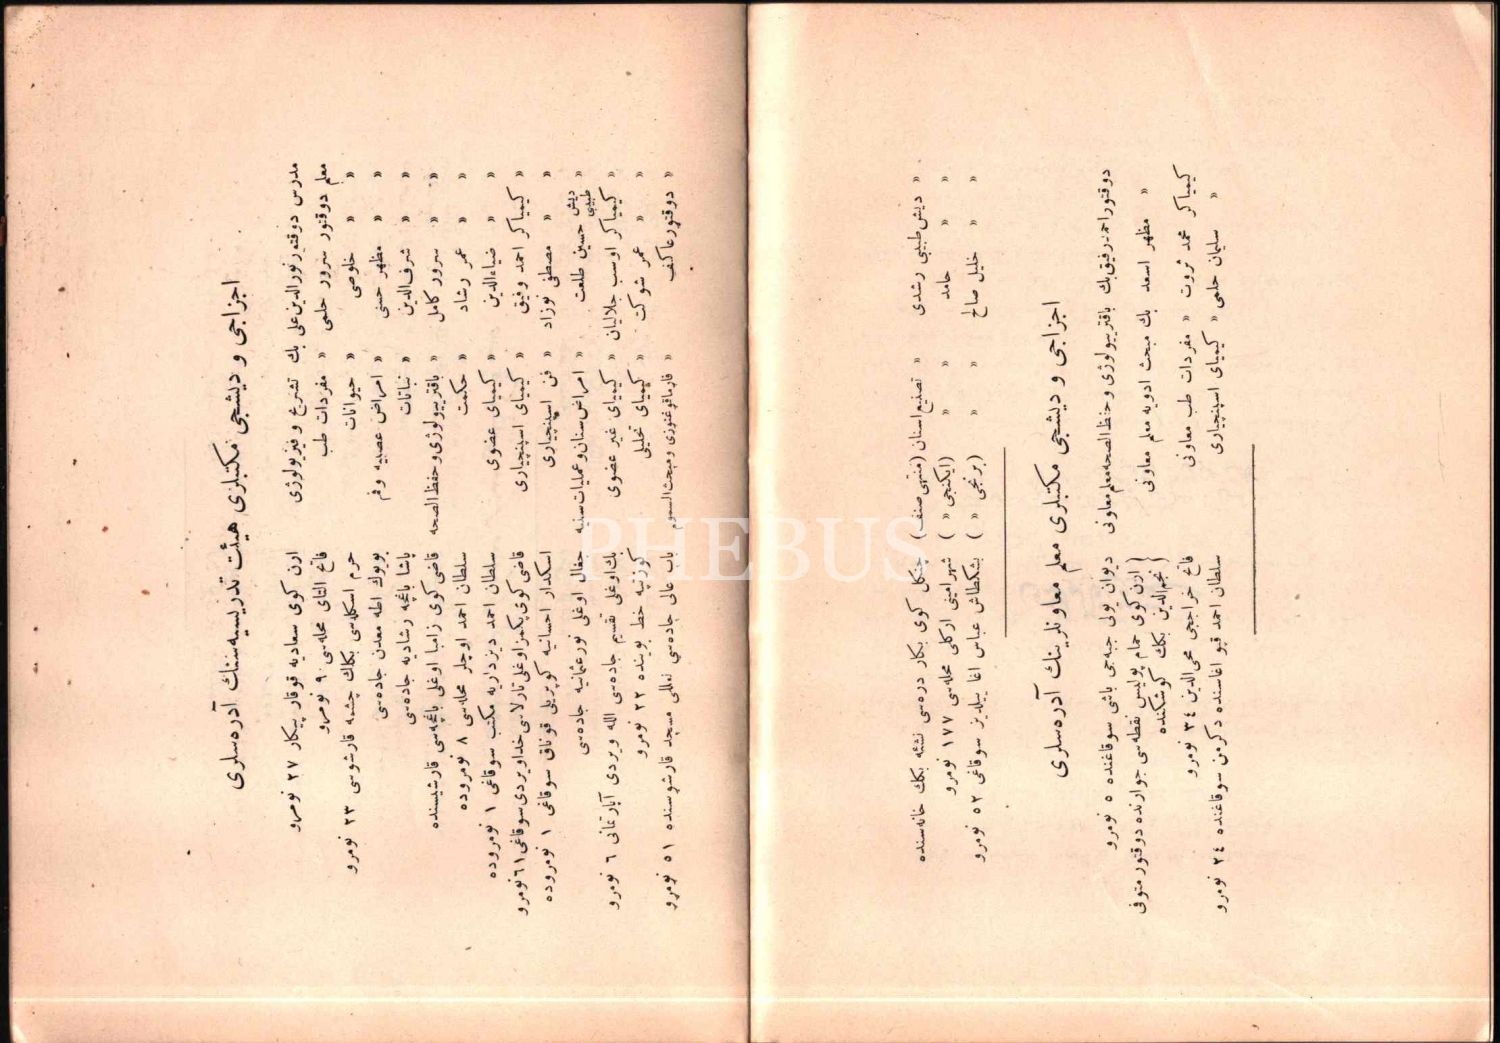 اجزاجی و دیشجی مکتبلری هیئت تدریسیه‌سنك آدره‌سلری
مدرس دوقتور نورالدین علی بك تشریح و فیزیولوژی ارن کوی سعادیه قوقار پیکار ٢٧ نومرو
معلم دوقتور سرور حلمی « مفردات طب فاتح التای محله‌سی ٩ نومرو
« « خلوصی « حیوانات حرم اسکله‌سی بکلك چشمه قارشوسی ٢٣ نومرو
« « مظهر حسنی « امراض عصبیه وفم بویوك اطه معدن جاده‌سی
« « شرف‌الدین « نباتات پاشا باغچه رشادیه جاده‌سی
« « سرور کامل « باقتریولوژی و حفظ‌الصحه قاضی کوی زامبا اوغلی باغچه‌سی قارشیسنده
« « عمر رشاد « حکمت سلطان احمد اوچلر محله‌سی ٨ نومروده
« « ضیاءالدین « کیمیای عضوی سلطان احمد دیزداریه مکتب سوقاغی ١ نومروده
« کیمیاکر احمد وفیق « کیمیای اسپنچیاری قاضی کوی پکمز اوغلی تارلاسی خداویردی سوقاغی ٦١ نومرو
« « مصطفی نوزاد « فن اسپنچیاری اسکدار احسانیه کوپریلی قوناق سوقاغی ١ نومروده
« دیش طبیبی حسین طلعت « امراض سنان و عملیات سنیه جغال اوغلی نورعثمانیه جاده‌سی
« کیمیاکر اوسب جلالیان « کیمیای غیر عضوی بك اوغلی تقسیم جاده‌سی الله ویردی آپارتمانی ٦ نومرو
« « عمر شوکت « کیمیای تحلیلی کوزتپه خط بوینده ٢٢ نومرو
« دوقتور عاکف « فارماقوغنوزی و مبحث‌السموم باب عالی جاده‌سی لعللی مسجد قارشوسنده ٥١ نومرو
PHEBUS
« دیش طبیبی رشدی « تصنیع اسنان (منتهی صنف) چنکل کوی بکار دره‌سی نشئه بکك خانه‌سنده
« « حامد « « (ایکنجی « ) شهرامینی ارکلی محله‌سی ١٧٧ نومرو
« « خلیل صالح « « (برنجی « ) بشکطاش عباس اغا ییلدیز سوقاغی ٥٢ نومرو
اجزاجی و دیشجی مکتبلری معلم معاونلرینك آدره‌سلری
دوقتور احمد رفیق بك باقتریولوژی و حفظ‌الصحه معلم معاونی دیوان یولی جبه‌جی باشی سوقاغنده ٥ نومرو
« مظهر اسعد بك مبحث ادویه معلم معاونی { ارن کوی حمام پولیس نقطه‌سی جوارنده دوقتور متوفی
نجم‌الدین بکك کوشکنده
کیمیاکر محمد ثروت « مفردات طب معاونی فاتح خراججی محی‌الدین ٣٤ نومرو
« سلیمان حلمی « کیمیای اسپنچیاری سلطان احمد قپو اغاسنده دکرمن سوقاغنده ٢٤ نومرو